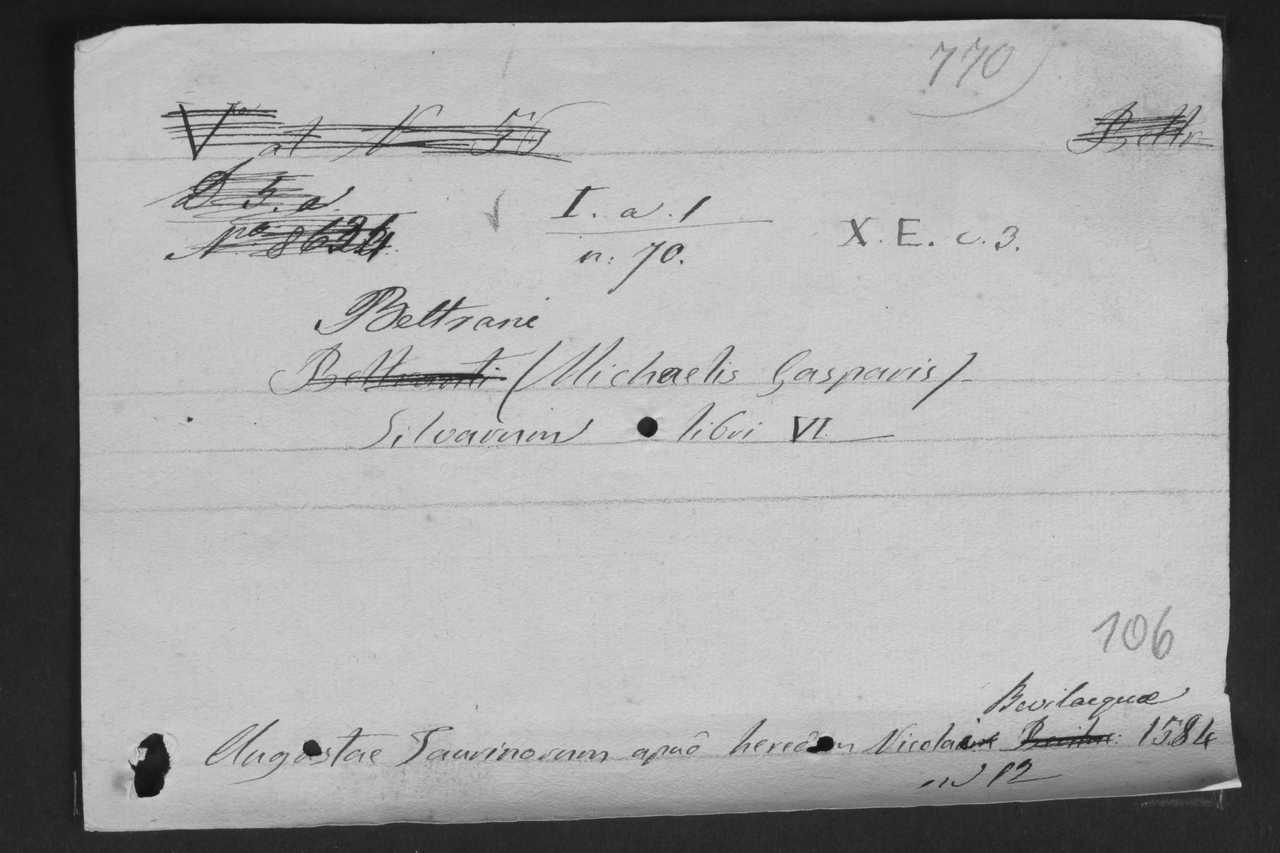 770
V at N 56
Beltr
D 5. a
N.ro 8624
I. a. 1
n. 70.
X. E. c. 3.
Beltrani
(Michaelis Gasparis)
Silvarum libri VI.
106
Bevilacquae
Augustae Taurinorum apud heredem Nicolai 1584
in 12